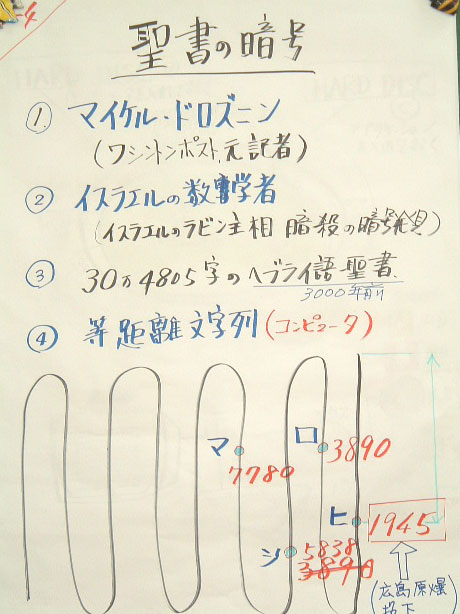 聖書の暗号
① マイケル・ドロズニン
(ワシントンポスト元記者)
② イスラエルの数学者
(イスラエルのラビン主相 暗殺の暗号発見)
③ 30万4805字のヘブライ語聖書
3000年前
④ 等距離文字列(コンピュータ)
マ
7780
ロ
3890
ヒ
1945
シ
5838
3890
(広島原爆
投下